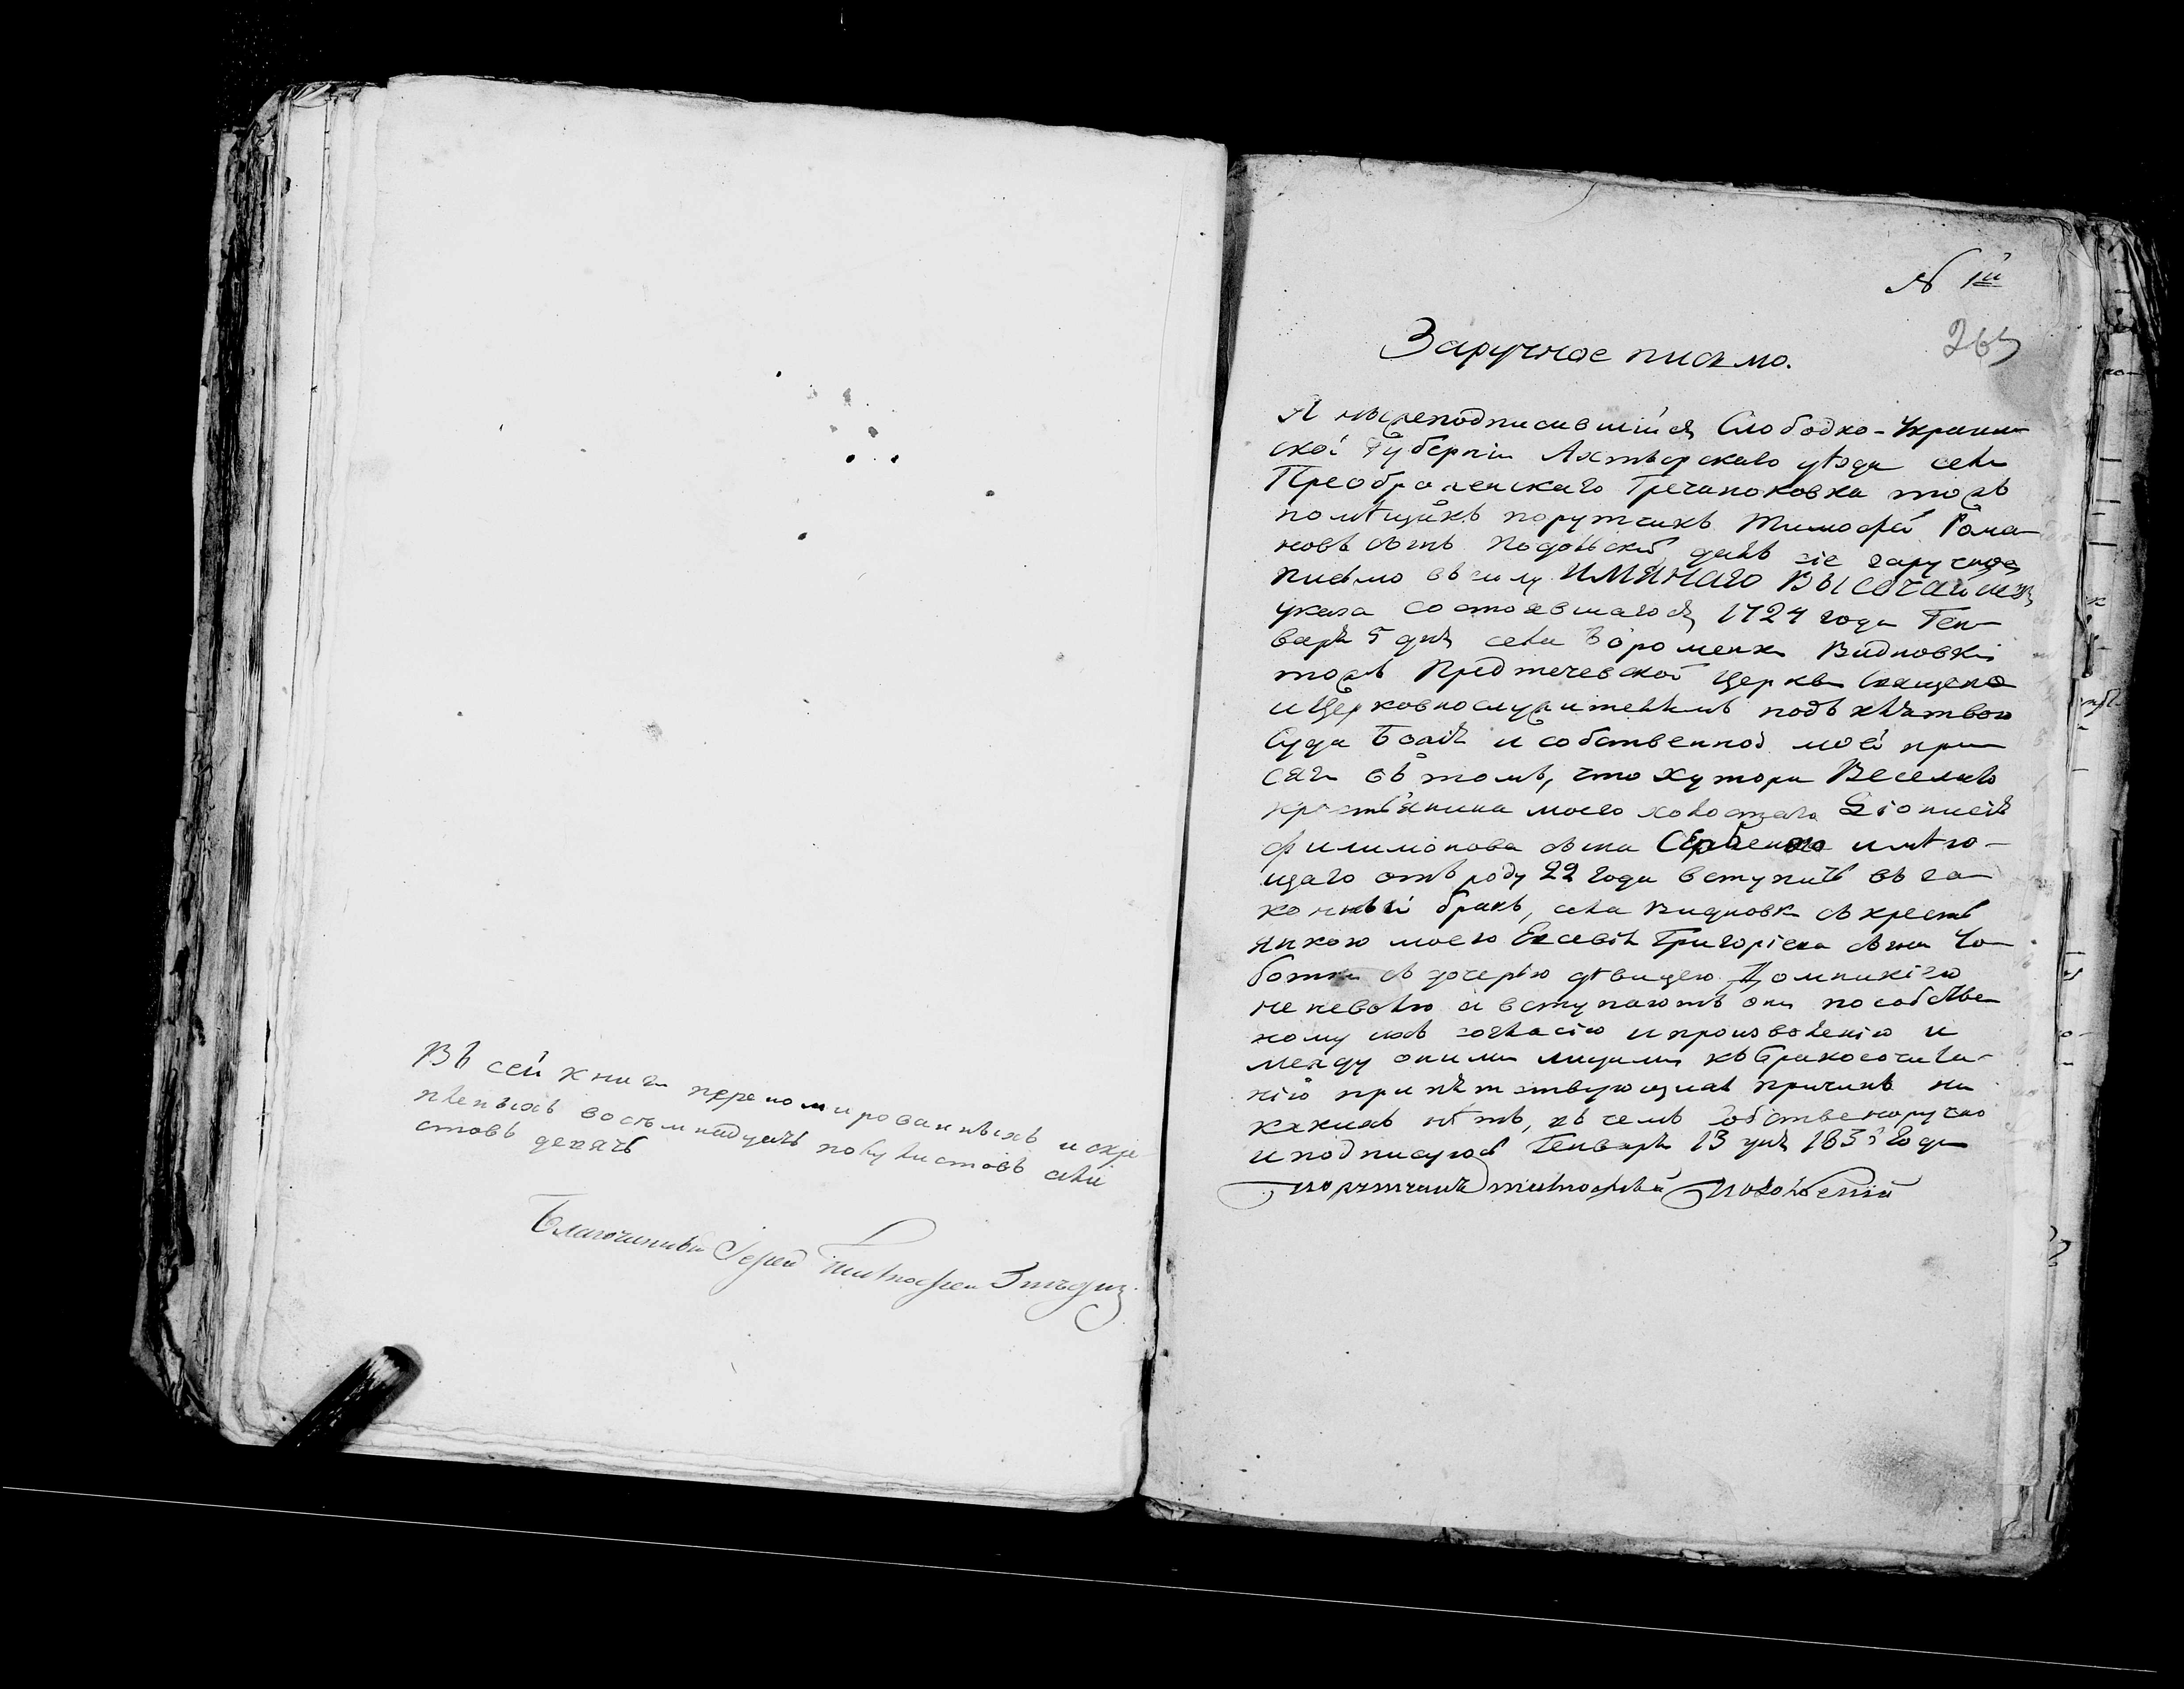 Въ сей книги переномированныхъ и скре
пленныхъ восъмнадцать полулистовъ сели
стовъ десять
Благочинный Іерей Тимофей
N 1й
265
Заручное письмо.
Я ныжеподписавшійся Слободко-Украин-
ской Губерніи Ахтырскаго уѣзда села
Преображенскаго Гречаноковка тожъ
помѣщикъ порутчикъ Тимофей Рома-
новъ сынъ Подольскій далъ сіе заручное
письмо въ силу ИМЯНАГО ВЫСОЧАЙШ
указа состоявшагося 1724 года Ген-
варя 5 дня села Бороменки Видновки
тожъ Предтечевской Церкви Священо
и Церковнослужителямъ подъ клятвою
Суда Божія и собственной моей при-
сяги въ томъ, что хутора Веселаго
крестьянина моего холостаго Діонисія
Филимонова сына Сербенка имѣю-
щаго отъ роду 22 года вступить въ за-
конный бракъ, села Видновки съ кресть
янкою моею Григоріева сына Чо-
ботка съ дочерью дѣвицею Домникіею
не неволю а вступаютъ они по собстве
ному ихъ согласію и произволенію и
между оными лицами къ бракосочита-
нію припятствующихъ причинъ ни
какихъ нѣтъ, въ чемъ Собственоручно
и подписуюсь Генваря 13 дня 1835 года
порутчикъ Тимофей Подольскій